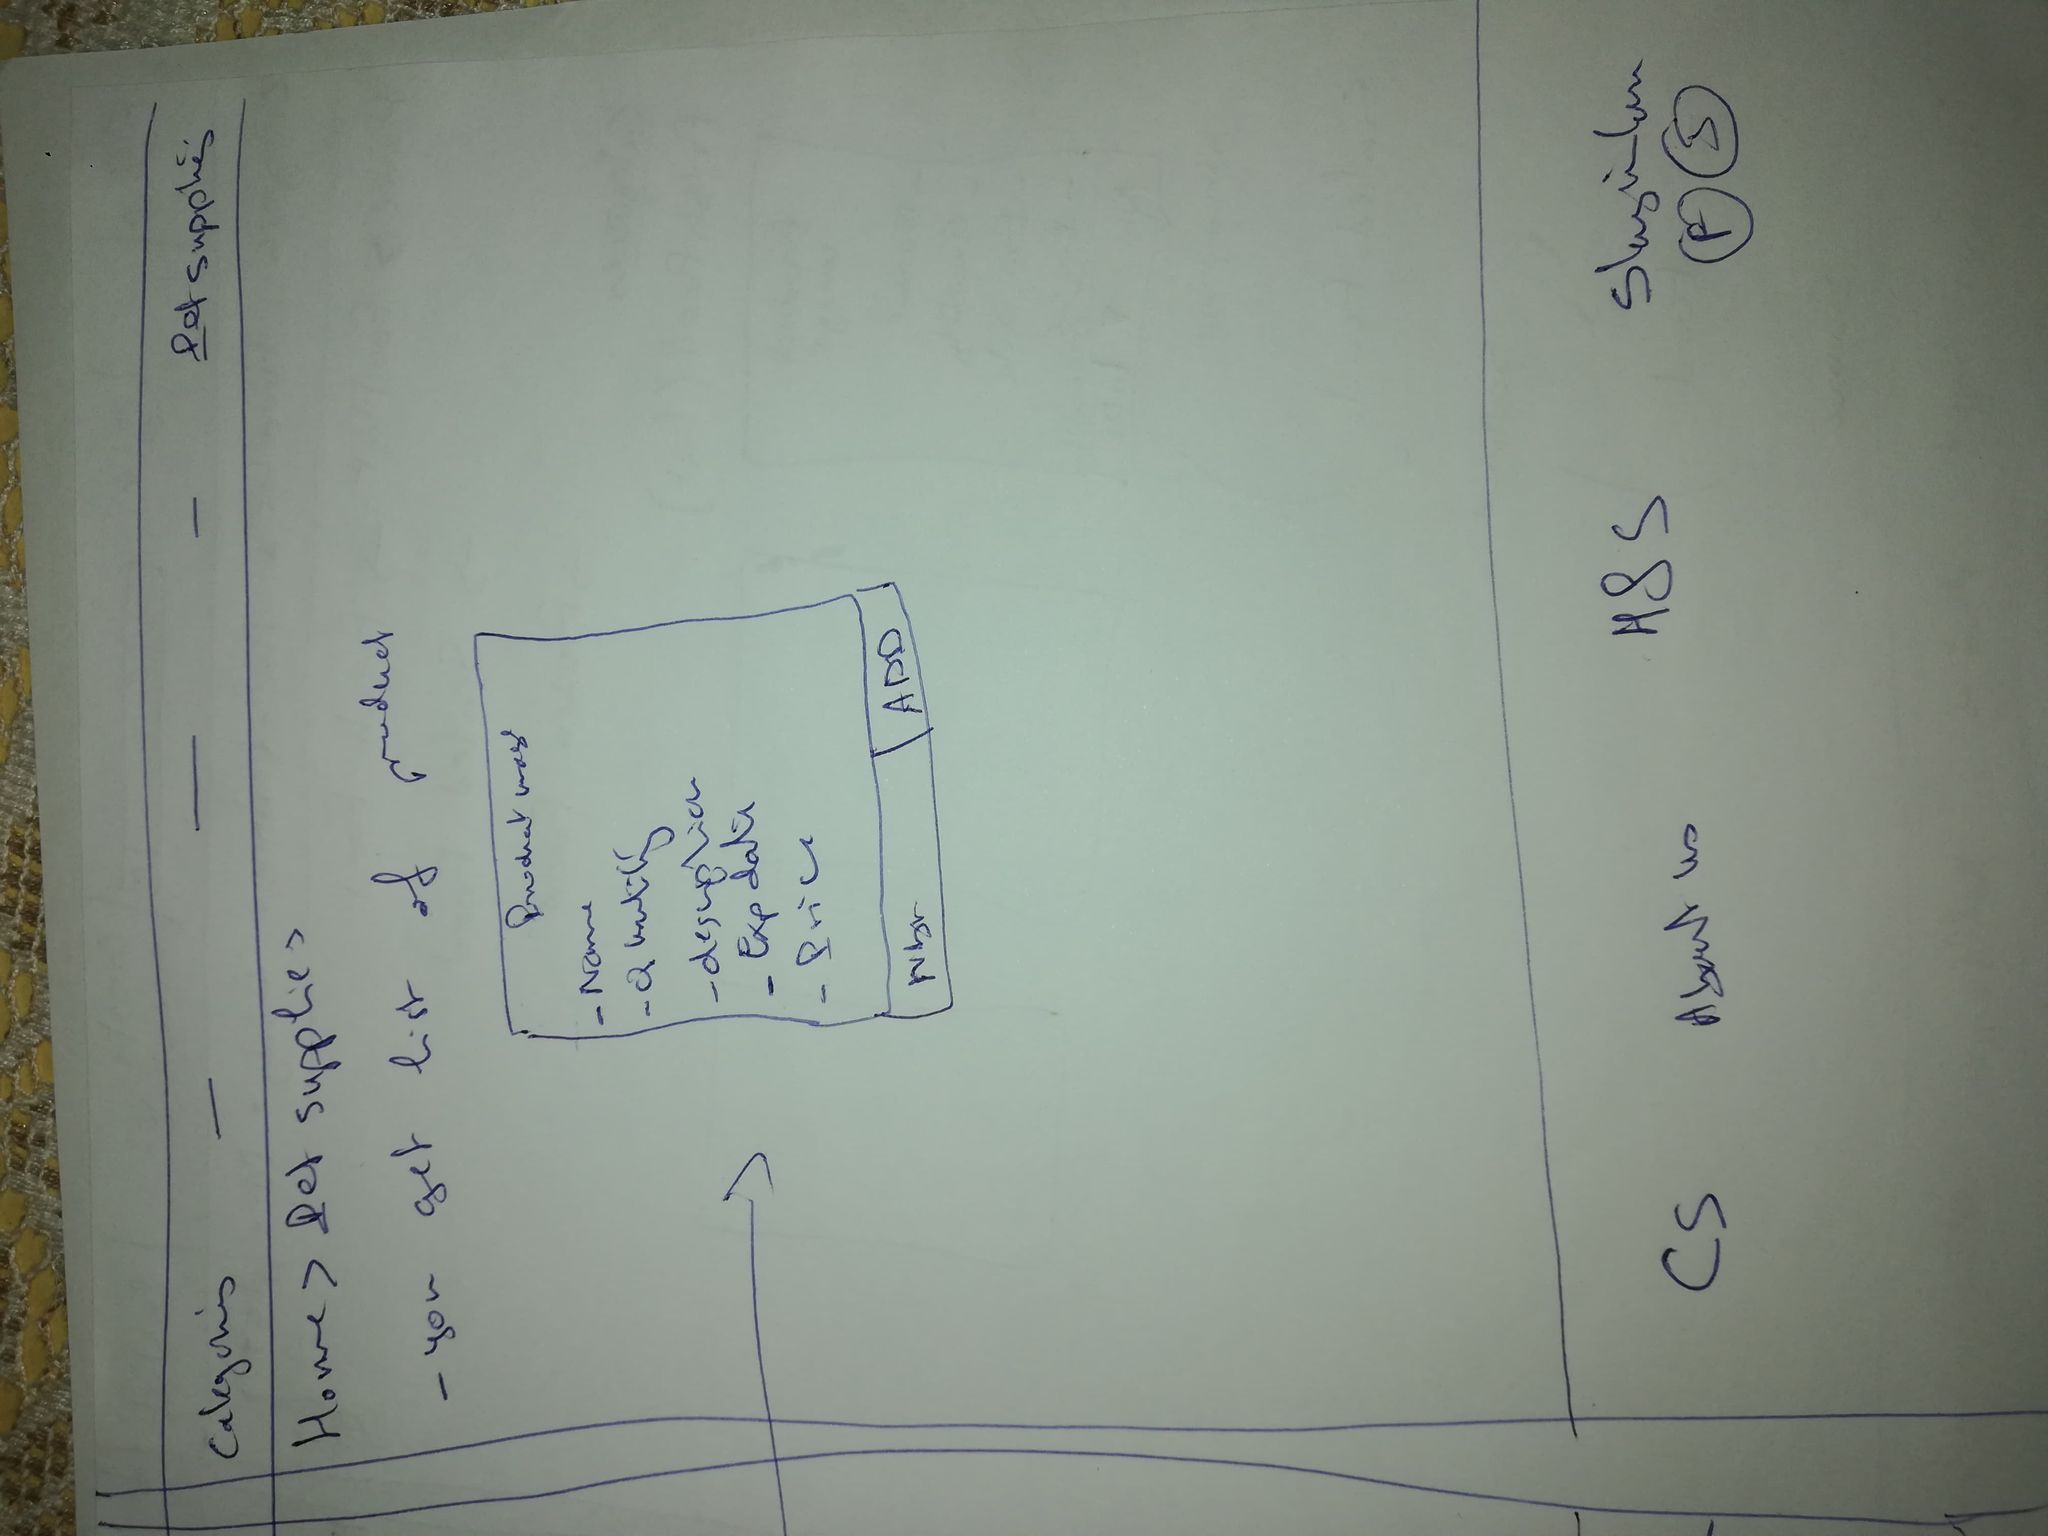 Categories — — — Pet supplies
Home > Pet supplies
- you get list of product
Product
- Name
- Quantity
- description
- Exp date
- Price
Nbr ADD
CS About us
F